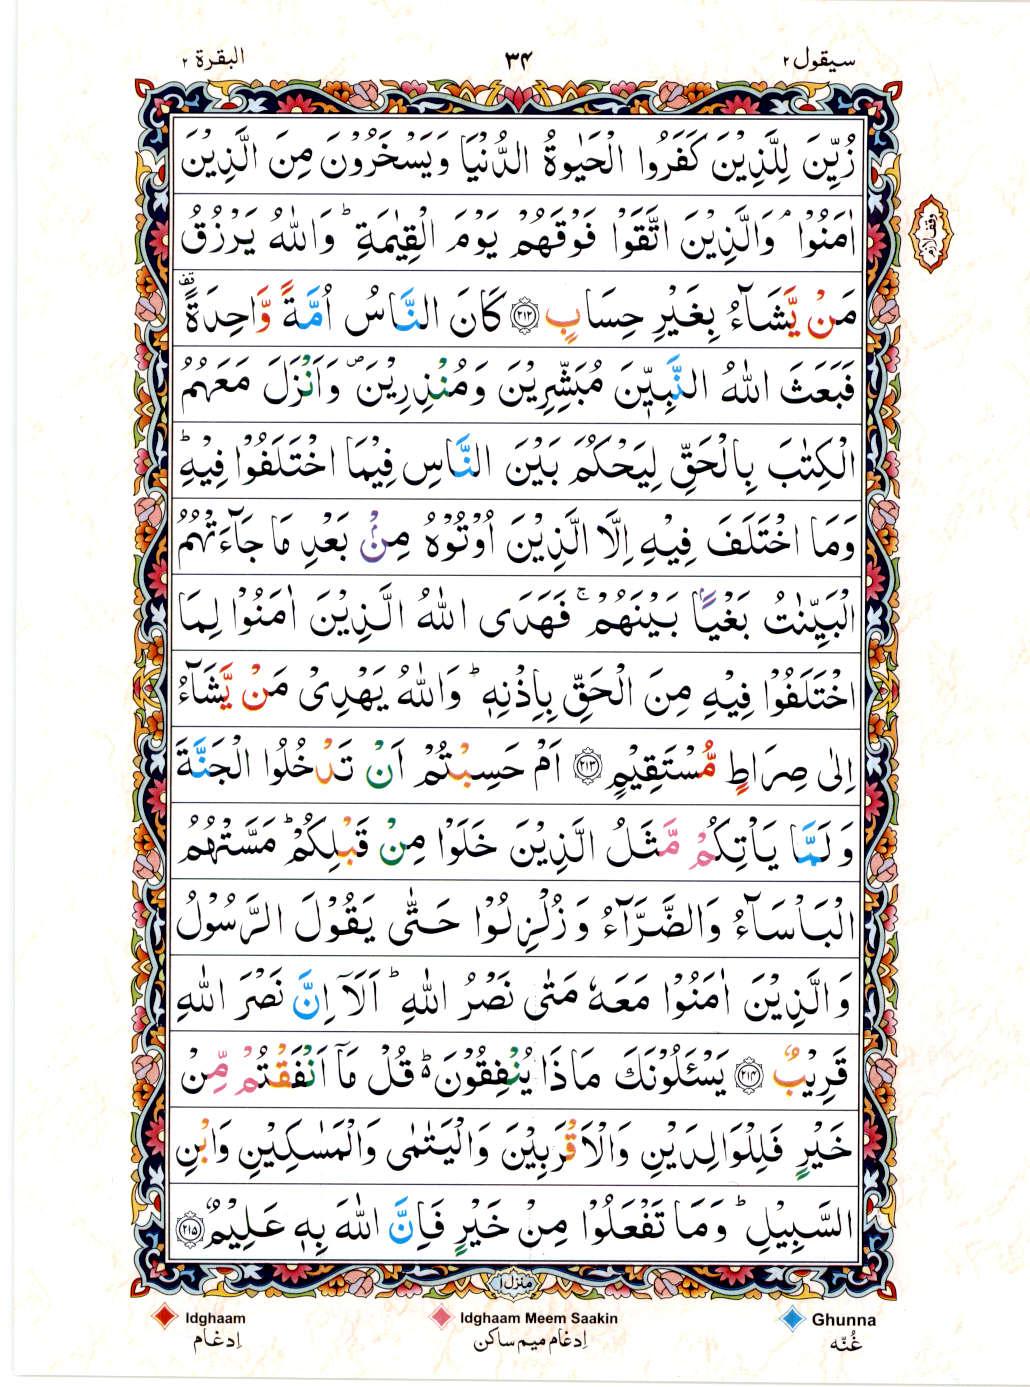 سيقول ٢
٣٤
البقرة ٢
زُيِّنَ لِلَّذِيْنَ كَفَرُوا الْحَيٰوةُ الدُّنْيَا وَيَسْخَرُوْنَ مِنَ الَّذِيْنَ
اٰمَنُوْا ۘ وَالَّذِيْنَ اتَّقَوْا فَوْقَهُمْ يَوْمَ الْقِيٰمَةِ ؕ وَاللّٰهُ يَرْزُقُ
وقف لازم
مَنْ يَّشَآءُ بِغَيْرِ حِسَابٍ ﴿۲۱۲﴾ كَانَ النَّاسُ اُمَّةً وَّاحِدَةً ۟
فَبَعَثَ اللّٰهُ النَّبِيّٖنَ مُبَشِّرِيْنَ وَمُنْذِرِيْنَ ۪ وَاَنْزَلَ مَعَهُمُ
الْكِتٰبَ بِالْحَقِّ لِيَحْكُمَ بَيْنَ النَّاسِ فِيْمَا اخْتَلَفُوْا فِيْهِ ؕ
وَمَا اخْتَلَفَ فِيْهِ اِلَّا الَّذِيْنَ اُوْتُوْهُ مِنْۢ بَعْدِ مَا جَآءَتْهُمُ
الْبَيِّنٰتُ بَغْيًۢا بَيْنَهُمْ ۚ فَهَدَى اللّٰهُ الَّذِيْنَ اٰمَنُوْا لِمَا
اخْتَلَفُوْا فِيْهِ مِنَ الْحَقِّ بِاِذْنِهٖ ؕ وَاللّٰهُ يَهْدِيْ مَنْ يَّشَآءُ
اِلٰى صِرَاطٍ مُّسْتَقِيْمٍ ﴿۲۱۳﴾ اَمْ حَسِبْتُمْ اَنْ تَدْخُلُوا الْجَنَّةَ
وَلَمَّا يَاْتِكُمْ مَّثَلُ الَّذِيْنَ خَلَوْا مِنْ قَبْلِكُمْ ؕ مَسَّتْهُمُ
الْبَاْسَآءُ وَالضَّرَّآءُ وَزُلْزِلُوْا حَتّٰى يَقُوْلَ الرَّسُوْلُ
وَالَّذِيْنَ اٰمَنُوْا مَعَهٗ مَتٰى نَصْرُ اللّٰهِ ؕ اَلَآ اِنَّ نَصْرَ اللّٰهِ
قَرِيْبٌ ﴿۲۱۴﴾ يَسْـَٔلُوْنَكَ مَاذَا يُنْفِقُوْنَ ؕ قُلْ مَآ اَنْفَقْتُمْ مِّنْ
خَيْرٍ فَلِلْوَالِدَيْنِ وَالْاَقْرَبِيْنَ وَالْيَتٰمٰى وَالْمَسٰكِيْنِ وَابْنِ
السَّبِيْلِ ؕ وَمَا تَفْعَلُوْا مِنْ خَيْرٍ فَاِنَّ اللّٰهَ بِهٖ عَلِيْمٌ ﴿۲۱۵﴾
منزل ١
Idghaam
Idghaam Meem Saakin
Ghunna
إدغام
إدغام ميم ساكن
غُنّه